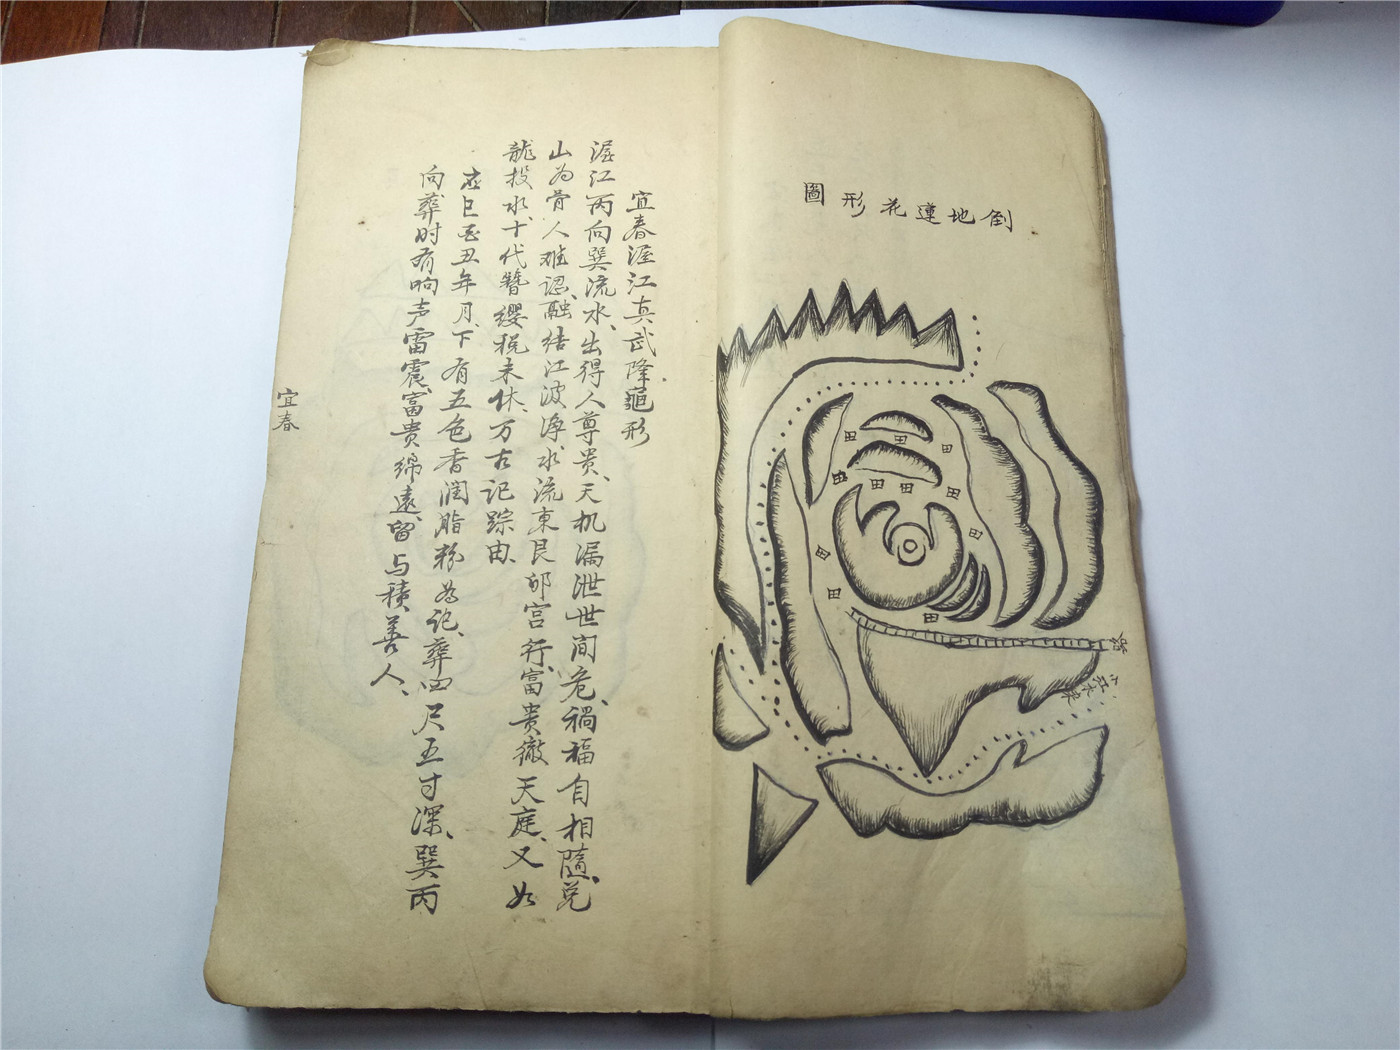 倒地蓮花形圖
宜春渥江真武降龜形
渥江丙向巽流水、出得人尊贵、天机漏泄世间危、禍福自相隨、兑
山为骨人难認、融结江波净、水流東艮卯宫行、富贵徹天庭、又如
龍投水、十代簪缨税未休、万古记踪由、
巳酉丑年月、下有五色香潤脂粉为记、葬四尺五寸深、巽丙
向葬时有响声雷震、富贵绵遠、留与積善人、
宜春